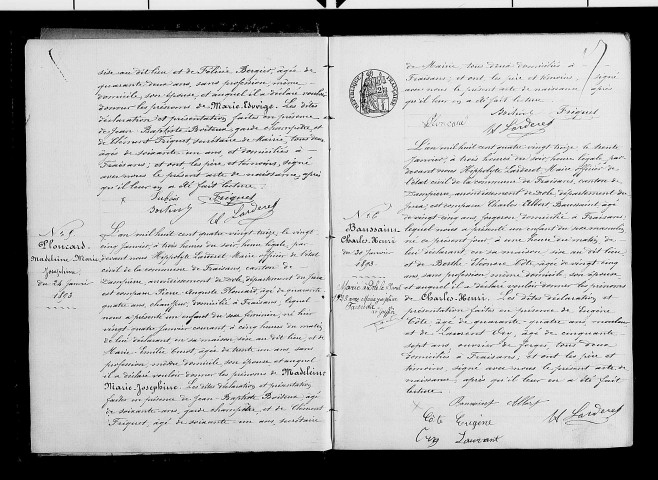 sise au dit lieu et de Féline Bergier, âgée de
quarante deux ans, sans profession même
domicile, son épouse et auquel il a déclaré vouloir
donner les prénoms de Marie-Edwige. Les dites
déclaration et présentation faites en présence
de Jean Baptiste Boiteux, garde champêtre, et
de Clément Friquet, secrétaire de Mairie, tous deux
âgés de soixante un ans et domiciliés à
Fraisans; et ont les père et témoins, signé
avec nous le présent acte de naissance, après
qu'il leur en a été fait lecture.
Friquet
H Larderet
Madeleine Marie
Josephine
du 24 janvier
1893
L'an mil huit cent quatre vingt treize, le vingt
cinq janvier, à trois heures du soir, heure légale, par
devant nous Hippolyte Larderet Maire officier de l'état
civil de la commune de Fraisans canton de
Dampierre, arrondissement de Dole, département du Jura
est comparu Pierre Auguste
quatre ans, domicilié à Fraisans, lequel
nous a présenté un enfant du sexe féminin, né hier
vingt quatre janvier courant à cinq heures du matin
de lui déclarant en sa maison sise au dit lieu, et de
Marie Emilie âgée de trente un ans, sans
profession, même domicile son épouse et auquel
il a déclaré vouloir donner les prénoms de Madeleine
Marie-Josephine. Les dites déclaration et présentation
faites en présence de Jean-Baptiste Boiteux, âgé
de soixante ans, garde champêtre, et de Clément
Friquet, âgé de soixante un ans, secrétaire
de Mairie tous deux domiciliés à
Fraisans; et ont les père et témoins, signé
avec nous le présent acte de naissance après
qu'il leur en a été fait lecture.
Friquet
H Larderet
REPUBLIQUE FRANÇAISE
N° 6
Charles-Henri
du 30 janvier
1893
L'an mil huit cent quatre vingt treize le trente
janvier, à trois heures du soir heure légale par
devant nous Hippolyte Larderet Maire officier de
l'état civil de la commune de Fraisans, canton de
Dampierre, arrondissement de Dole département du
Jura, est comparu Charles Albert Baussaint âgé
de vingt cinq ans, forgeron domicilié à Fraisans
lequel nous a présenté un enfant du sexe masculin
né ce présent jour à une heure du matin, de
lui déclarant en sa maison sise au dit lieu
et de Berthe Léonie Côte, âgée de vingt cinq
ans sans profession même domicile, son épouse
et auquel il a déclaré vouloir donner les prénoms
de Charles-Henri. Les dites déclaration et
présentation faites en présence de Eugène
Côte âgé de quarante quatre ans
et de Laurent Cuy, âgé de cinquante
sept ans ouvrier de forges, tous deux
domiciliés à Fraisans, et ont les père et
témoins, signé avec nous le présent acte de
naissance, après qu'il leur en a été fait
lecture.
Baussaint Albert
Côte Eugène
H Larderet
Cuy Laurent